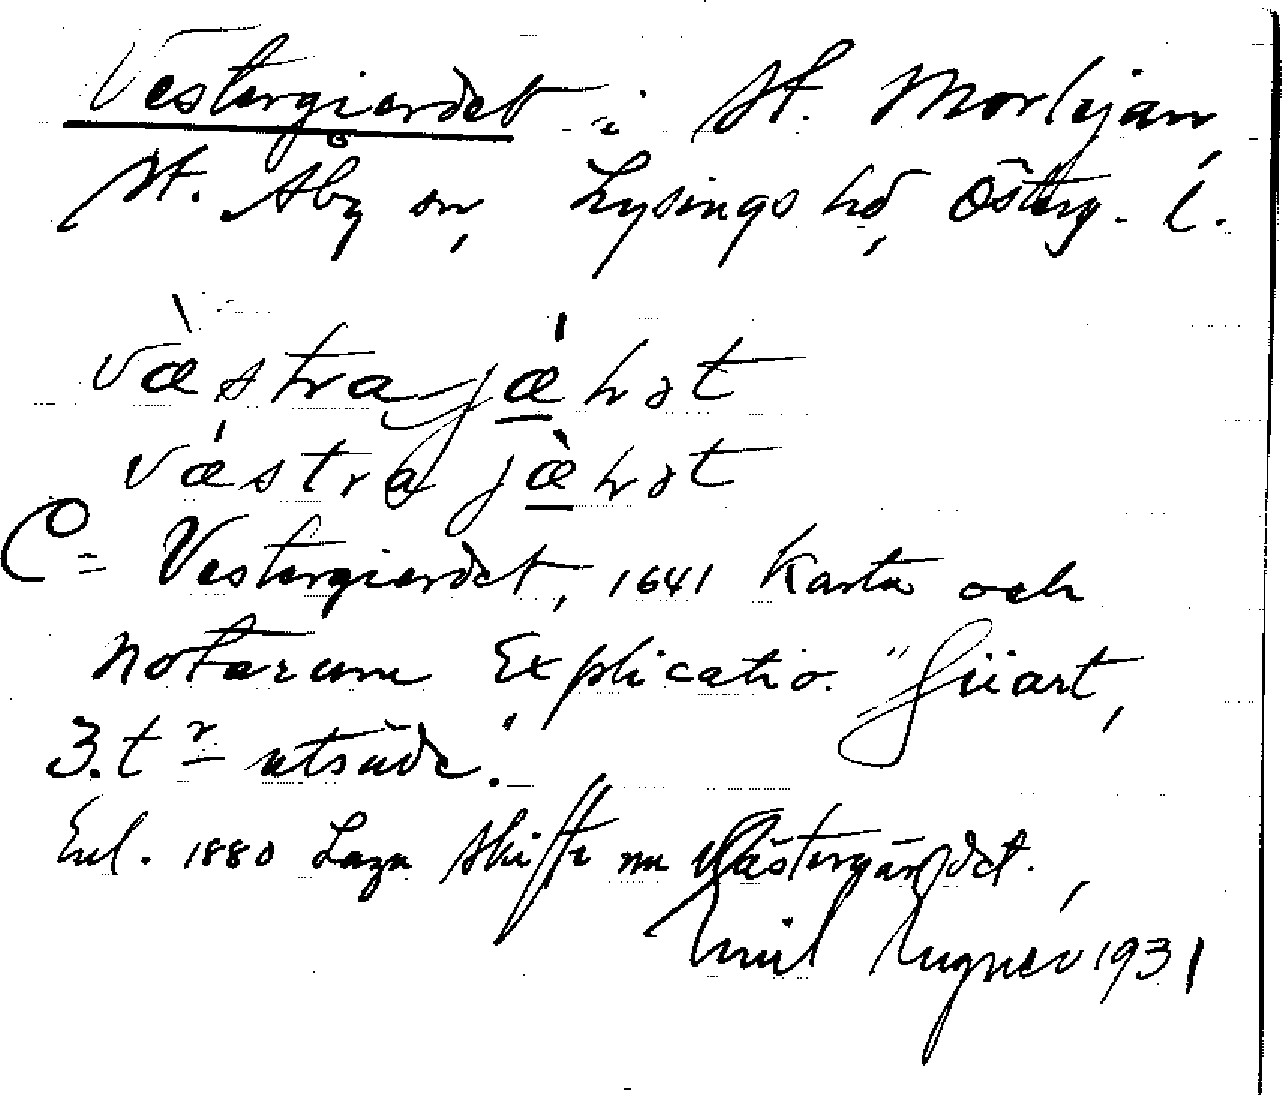 Vestergierdet i St. Morlejan,
St. Åby sn, Lysings hd, Österg. l.
væstra jæhrət
væstra jæhrət
C = Vestergierdet, 1641 Karta och
notarum Explicatio. "Giärt,
3. tr utsäde."
Enl. 1880 Laga Skifte nu Västergärdet.
Emil 1931